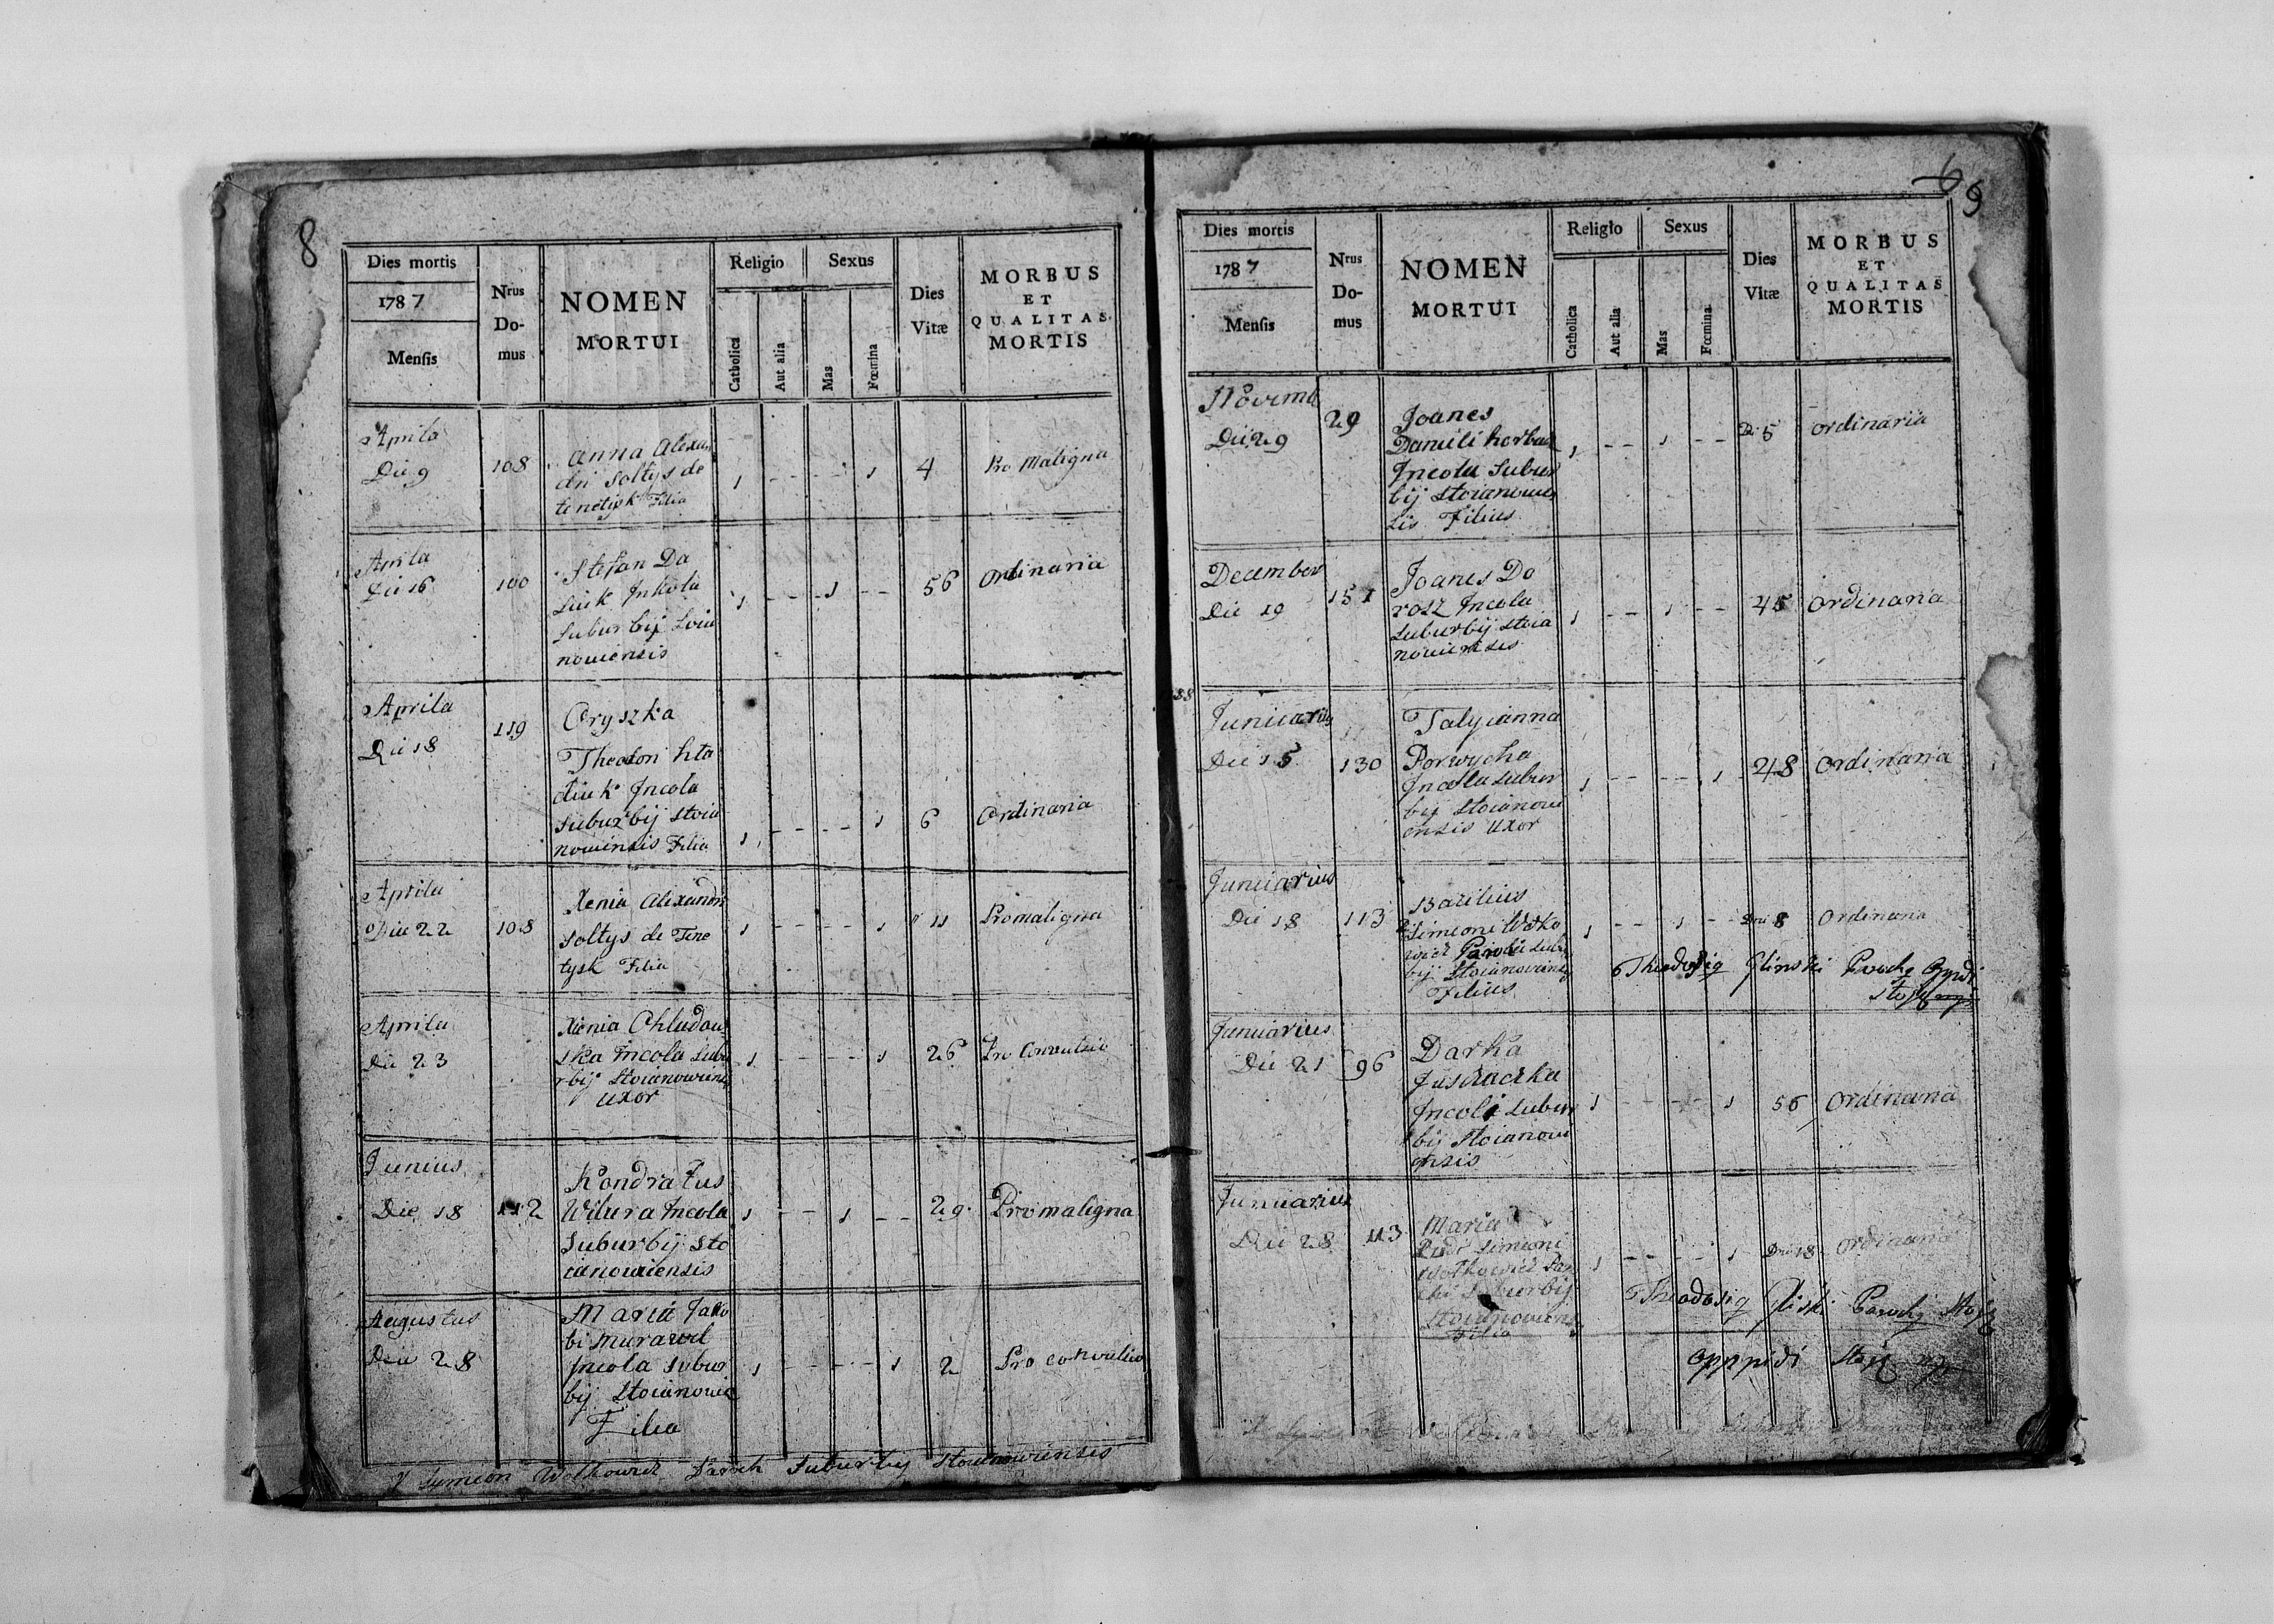 8
Dies mortis
1787
Mensis
Nrus
Do-
mus
NOMEN
MORTUI
Religio
Catholica
Aut alia
Sexus
Mas
Fœmina
Dies
Vitæ
MORBUS
ET
QUALITAS
MORTIS
Aprila
Die 9
108
Anna Alexan
dri Soltys de
tenetysk Filia
1 - - - - 1
4
Pro Maligna
Aprila
Die 16
100
Stefan Da
siuk Inkola
Suburbij Stoia
nowiensis
1 - - - 1 - -
56
Ordinaria
Aprila
Die 18
119
Oryszka
Theodori hla
diuk Incola
Suburbij Stoia
nowiensis Filia
1 - - - - 1
6
Ordinaria
Aprila
Die 22
108
Xenia Alexandri
Soltys de Tene
tysk Filia
1 - - - - 1
11
Pro maligna
Aprila
Die 23
Xienia Chludow
ska Incola Subu
rbij Stoianowiens
uxor
1 - - - - 1
26
Pro Convulsio
Junius
Die 18
112
Kondratus
Wilura Incola
Suburbij Sto
ianowiensis
1 - - 1 - -
29
Pro maligna
Augustus
Die 28
Maria Jako
bi Murawel
Incola Subur
bij Stoianowie
Filia
1 - - - - 1
2
Pro convulsio
Symeon Wolkowicz Paroch Suburbij Stoianowiensis
6
9
Dies mortis
1787
Mensis
Nrus
Do-
mus
NOMEN
MORTUI
Religio
Catholica
Aut alia
Sexus
Mas
Fœmina
Dies
Vitæ
MORBUS
ET
QUALITAS
MORTIS
Novemb
Die 29
29
Joanes
Danieli horbal
Incola Subur
bij Stoianowien
sis Filius
1 - - 1 - -
D 5
ordinaria
December
Die 19
151
Joanes Do
rosz Incola
Suburbij Stoia
nowiensis
1 - - 1 - -
45
Ordinaria
1788
Januarius
Die 15
130
Tatyianna
Porwycha
Incola Subur
bij Stoianowi
ensis uxor
1 - - - - 1
48
Ordinaria
Januarius
Die 18
113
Bazilius
Simeoni Wolko
wicz Parochi Subur
bij Stoianowiens
Filius
1 - - 1 - -
Dni 8
Ordinaria
Theodosig Glinski Paroch Oppidi
Januarius
Die 21
96
Darka
Juszczaczka
Incola Subur
bij Stoianowi
ensis
1 - - - - 1
56
Ordinaria
Januarius
Die 28
113
Maria
Simeoni
Wolkowicz Par
chi Suburbij
Stoianowiens
Filia
1 - - - - 1
Dni 18
Ordinaria
Theodosig Gliski Paroch
Oppidi